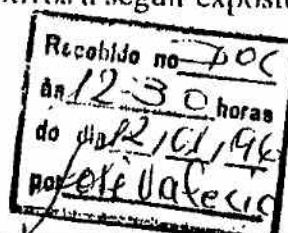 a seguir exposto
Recebido no DOC
às 12:30 horas
do dia 12/01/94
por